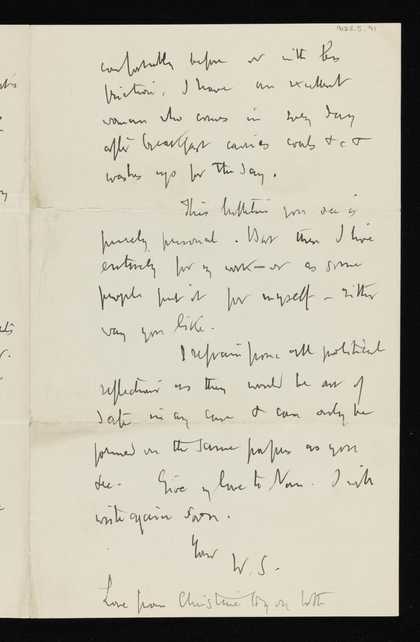 9122.5.91
comfortably before or with less
friction. I have an excellent
woman who comes in every day
after breakfast carries coals & c &
washes up for the day.
This bulletin you see is
purely personal. But then I live
entirely for my work — or as some
people put it for myself — either
way you like.
I refrain from all political
reflections as they would be out of
date in any case & can only be
formed on the same papers as you
see. Give my love to Nan. I will
write again soon.
Your
W. S.
Love from Christine to you both